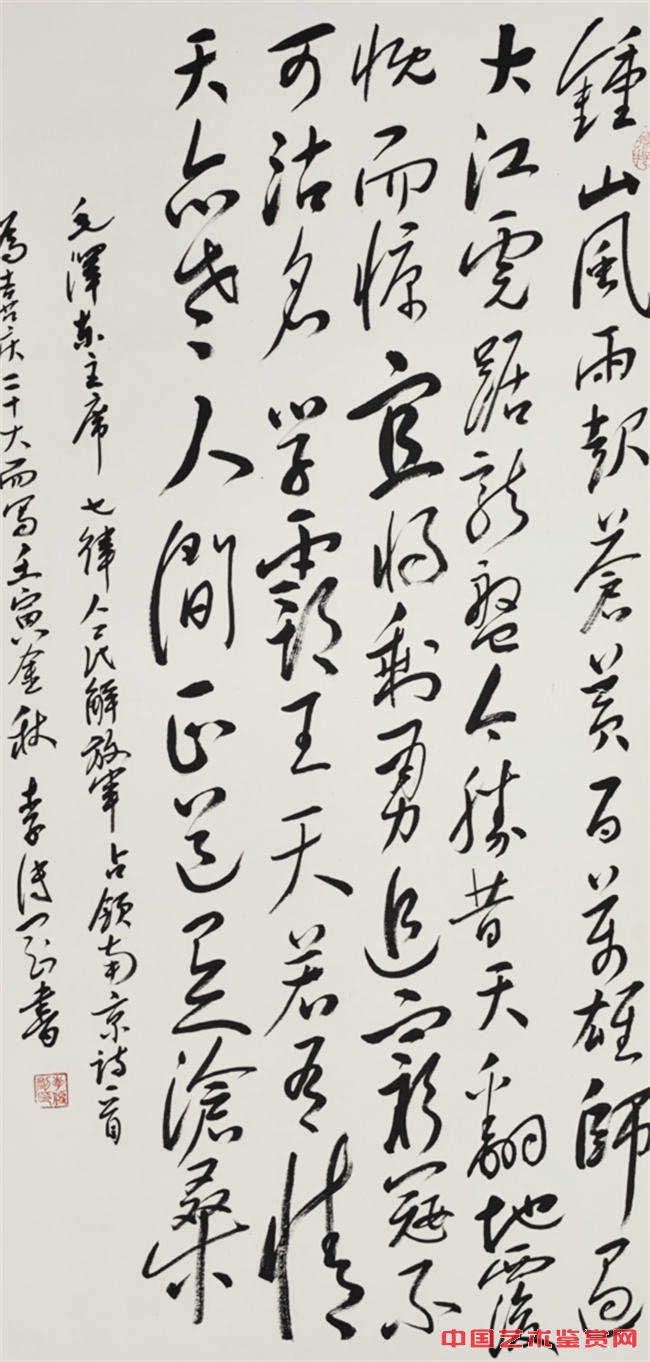 鍾山風雨起蒼黃百萬雄師過
大江虎踞龍盤今勝昔天翻地覆
慨而慷宜將剩勇追窮寇不
可沽名學霸王天若有情
天亦老人間正道是滄桑
毛澤東主席七律人民解放軍占領南京詩一首
為喜慶二十大而寫壬寅金秋 李傳書
中国艺术鉴赏网